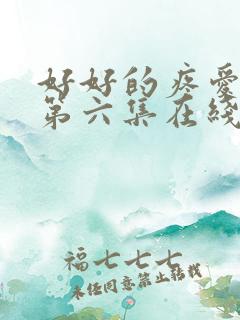 好好的疼爱
第六集在线
福七七七
未经同意禁止转载